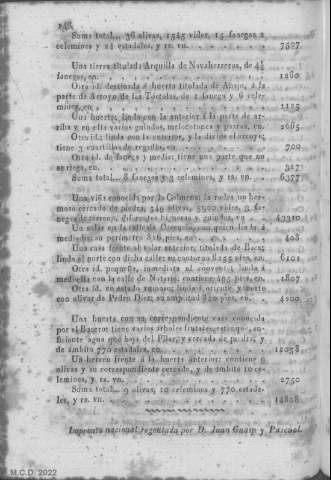 148
Suma total... 36 olivas, 1545 vides, 15 fanegas 2
celemines y 24 estadales, y rs. vn. . . . . 7527
Una tierra titulada Arquilla de Navalterreros, de 4½
fanegas, en. . . . . . 1280
Otra id. destinada á huerta titulada de Abajo, á la
parte de Arroyo, de las Tórtolas, de 1 fanega y 6 cele-
mines, en. . . . . . 1125
Una huerta, linda con la anterior á la parte de ar-
riba y en ella varios guindos, melocotones y parras, en. 2685
Otra id.; linda con la anterior, y la de
tiene 3 cuartillos de regadío, en. . . . 700
Otra id. de fanega y media; tiene una parte que no
se riega, en. . . . . 3217
Suma total... 8 fanegas y 3 celemines, y rs. vn. . 6377
Una viña conocida por la Colmena; la rodea un her-
moso cercado de piedra, 549 olivas, 5900 vides, 3 fa-
negas de terreno, diferentes higueras y guindos, en 43310
Un solar en la calle de con quien linda á
mediodia; su perímetro 816 pies, en. . . 408
Una casa frente al solar anterior, titulada de
linda al norte con dicha calle; su contorno 8255 pies, en. 6101
Otra id. pequeña, inmediata al convento; linda á
mediodia con la calle de contiene 495 pies, en. 1807
Otra id. en estado ruinoso; linda á oriente y norte
con olivar de Pedro Diez; su amplitud 820 pies, en. . 4200
Una huerta con su correspondiente casa conocida
por el tiene varios árboles frutales, estanque, su-
ficiente agua que baja del Pilar, y cercada de piedra, y
de ámbito 770 estadales, en. . . . 12058
Un herren frente á la huerta anterior; contiene 9
olivas y su correspondiente cercado, y de ámbito 10 ce-
lemines, y rs. vn. . . . . 2750
Suma total... 9 olivas, 10 celemines y 770 estada-
les, y rs. vn. . . . . 14808
Imprenta nacional regentada por D. Juan Guasp y Pascual.
M.C.D. 2022